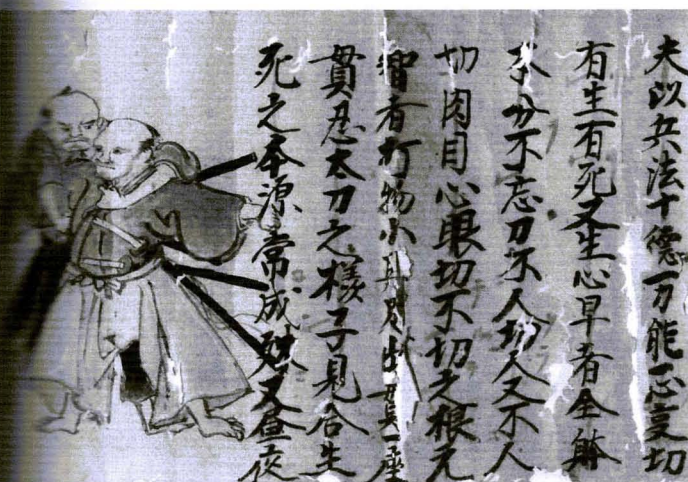 夫以兵法十徳一刀能一心受切
有生有死又生心早者全躰
本分不忘刀不人切人又不人
切肉目心眼切不切之根元
智者打物小具足出 一座
貫忍太刀之様子見合生
死之本源常成 又昼夜